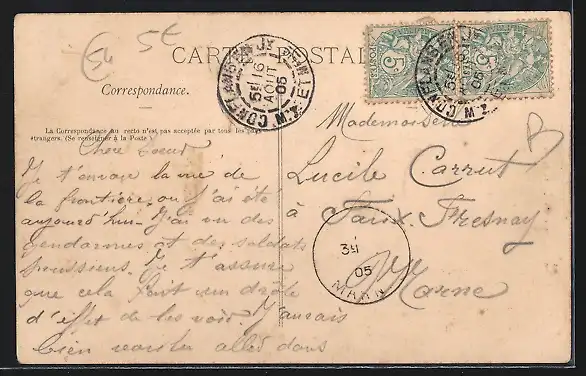 54 5t
CARTE POSTALE
Correspondance.
La Correspondance au recto n'est pas acceptée par tous les pays
étrangers. (Se renseigner à la Poste.)
CONFLANS-EN-JY
5E 16 AOUT 05
Mademoiselle
Lucile Carrut
à Faux-Fresnay
Marne
B
05
Chère Soeur
Je t'envoie la vue de
la frontière où j'ai été
aujourd'hui. J'ai vu des
gendarmes et des soldats
prussiens. Je t'assure
que cela fait un drôle
d'effet de les voir. J'aurais
bien voulu aller dans